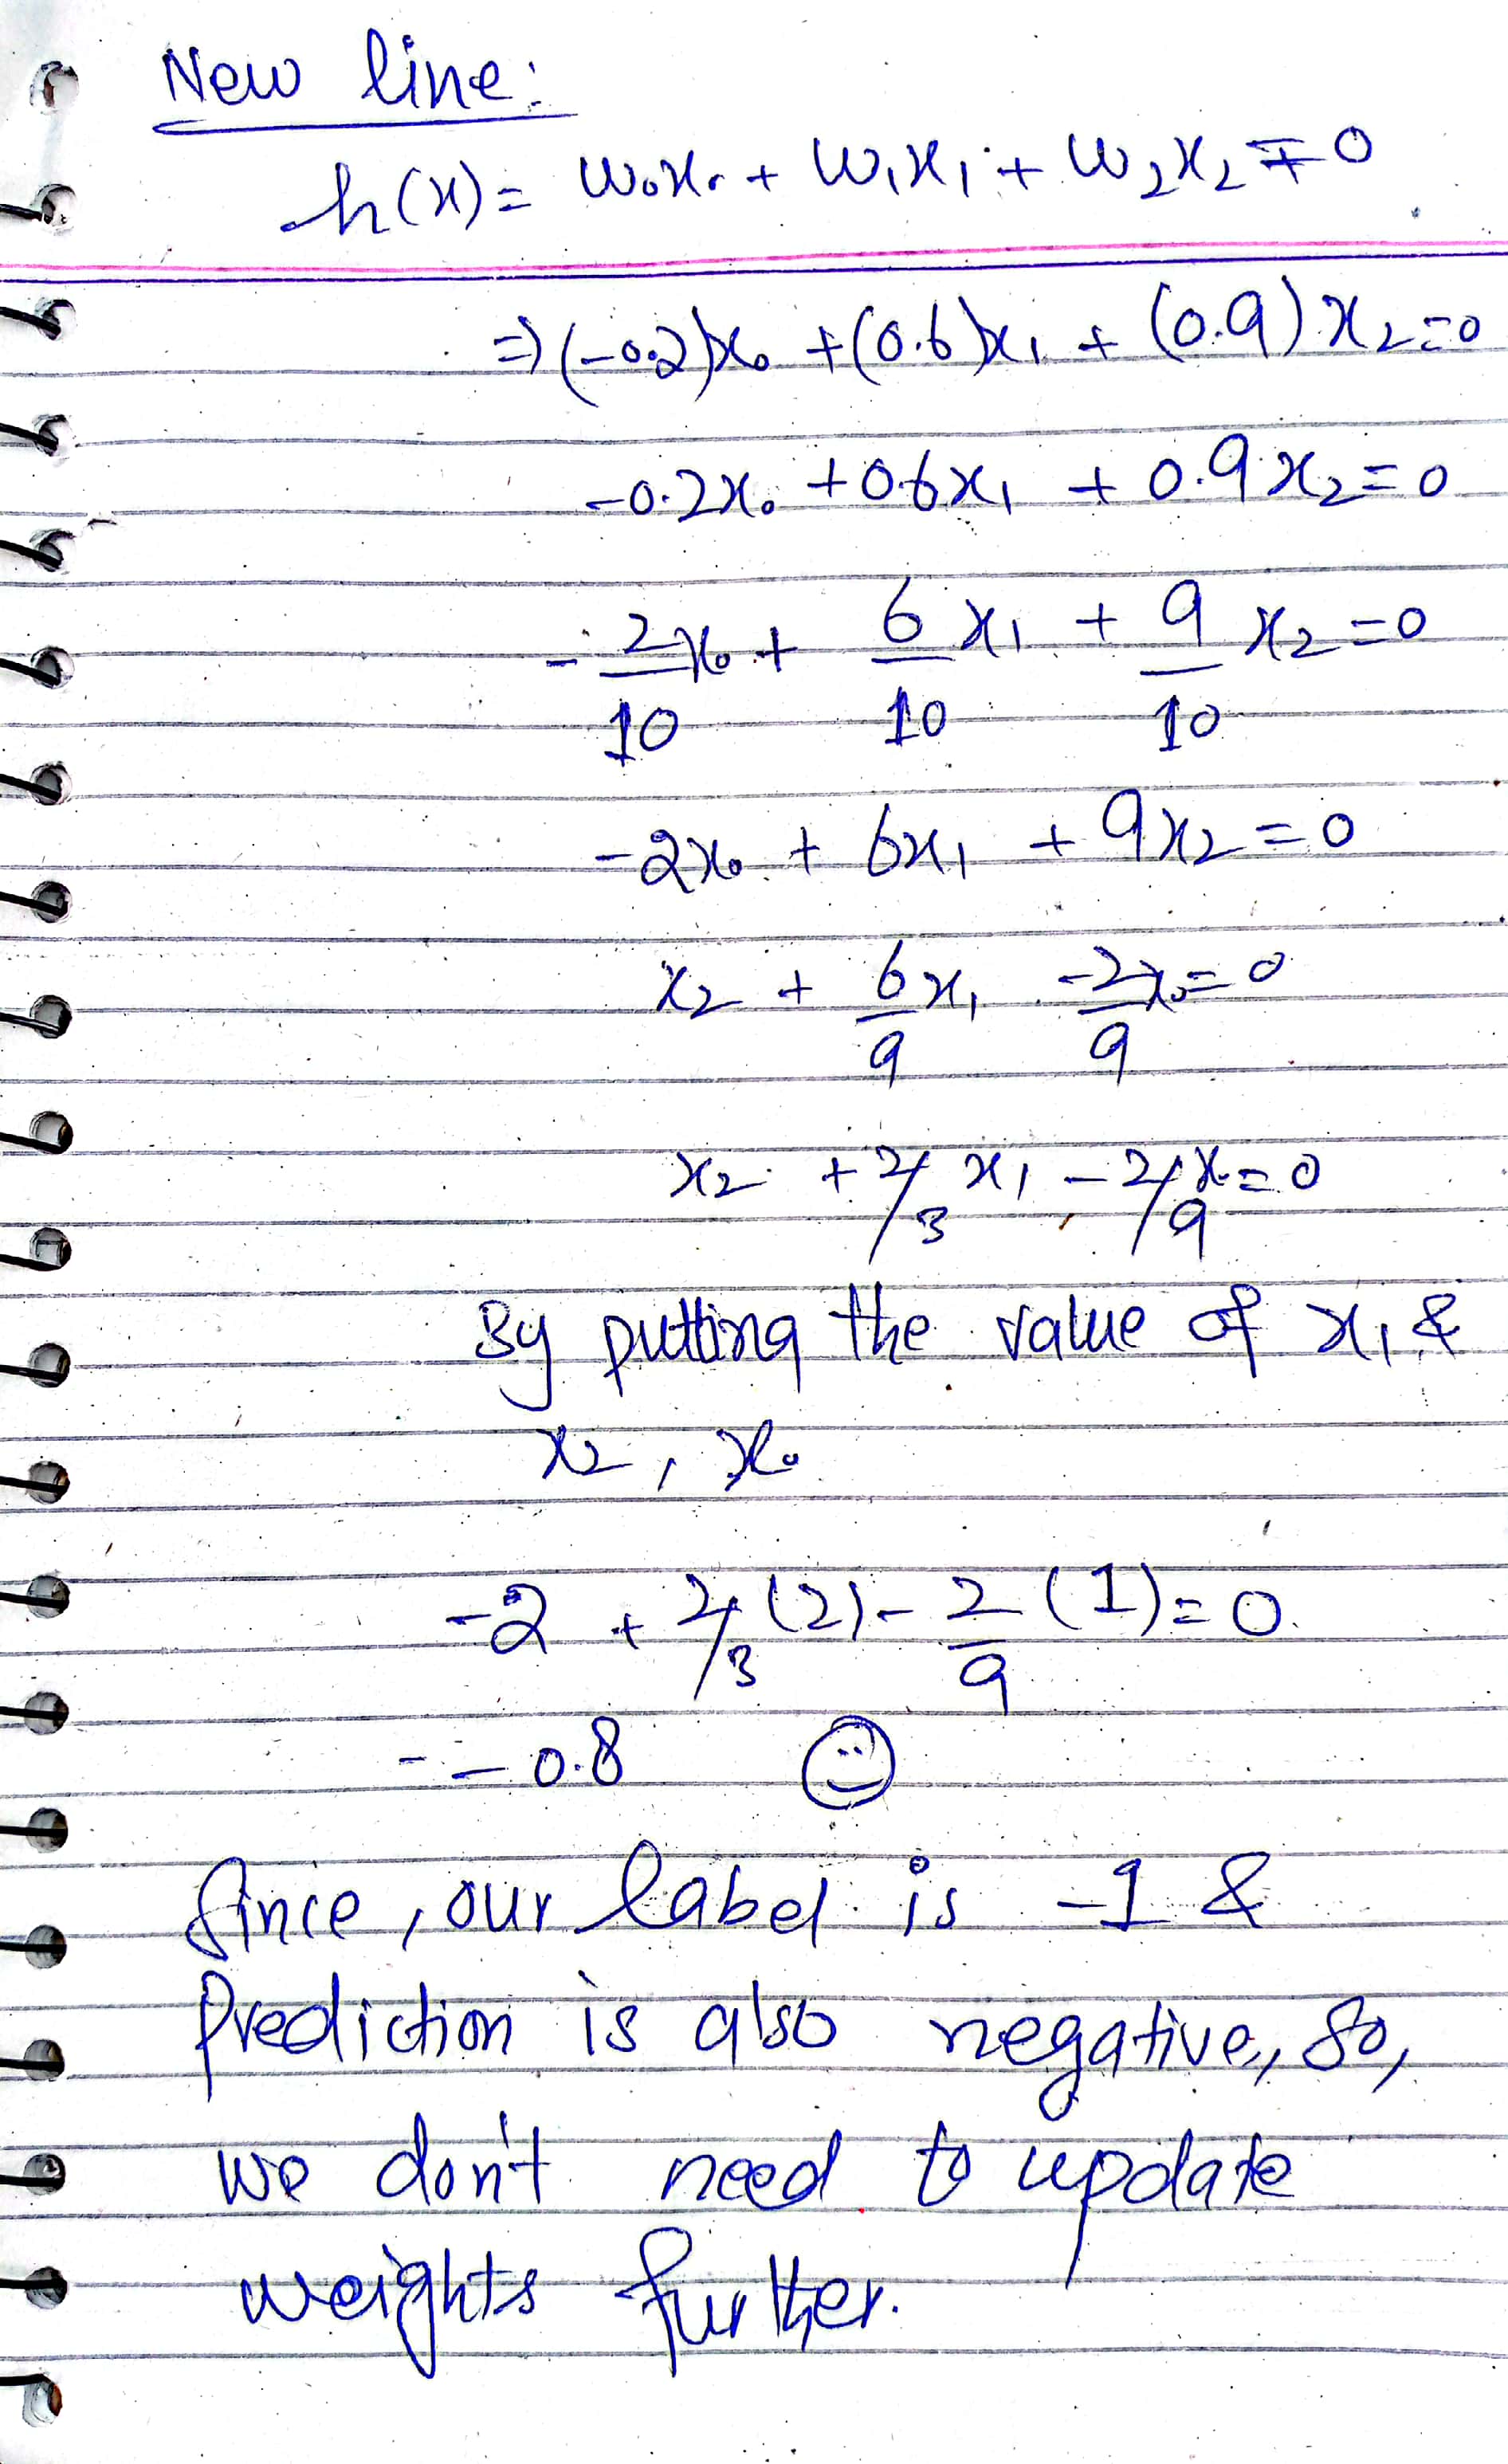 New line:
h(x) = w₀x₀ + w₁x₁ + w₂x₂ = 0
⇒ (-0.2)x₀ + (0.6)x₁ + (0.9)x₂ = 0
-0.2x₀ + 0.6x₁ + 0.9x₂ = 0
-2/10 x₀ + 6/10 x₁ + 9/10 x₂ = 0
-2x₀ + 6x₁ + 9x₂ = 0
x₂ + 6/9 x₁ - 2/9 x₀ = 0
x₂ + 2/3 x₁ - 2/9 x₀ = 0
By putting the value of x₁ &
x₂, x₀
-2 + 2/3 (2) - 2/9 (1) = 0
- - 0.8
Since, our label is -1 &
Prediction is also negative,, So,
we don't need to update
weights further.